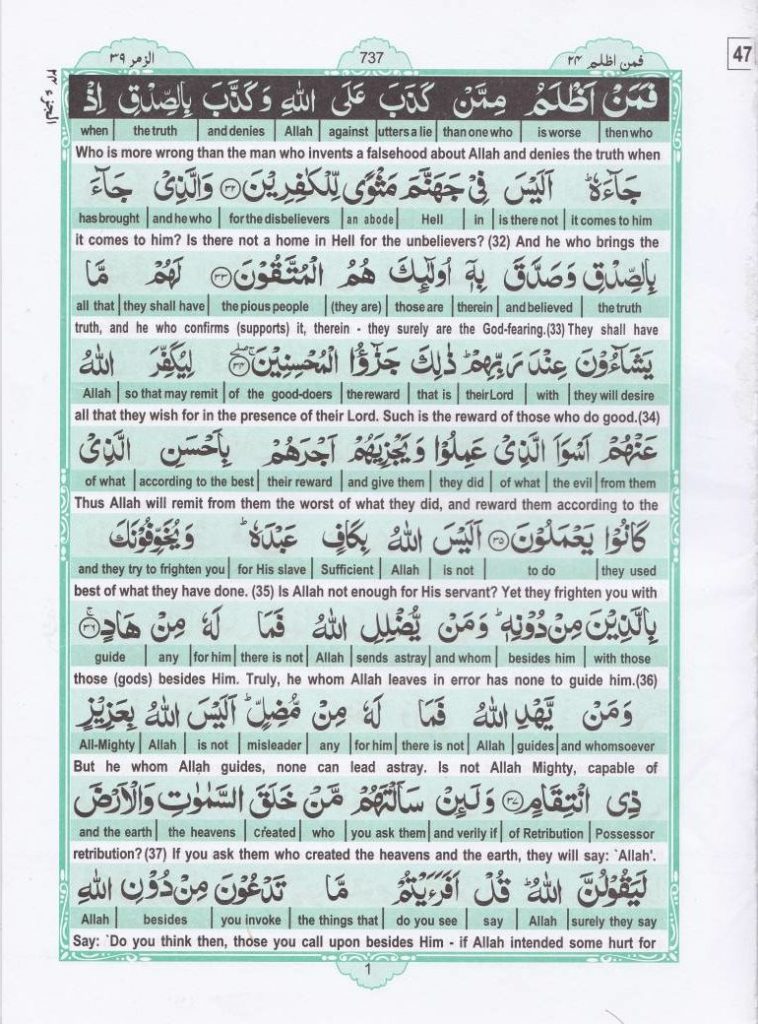 الزمر ٣٩
737
فمن اظلم ٢٤
47
فَمَنْ اَظْلَمُ مِمَّنْ كَذَبَ عَلَى اللهِ وَكَذَّبَ بِالصِّدْقِ اِذْ
when the truth and denies Allah against utters a lie than one who is worse then who
Who is more wrong than the man who invents a falsehood about Allah and denies the truth when
جَآءَهٗ ؕ اَلَيْسَ فِيْ جَهَنَّمَ مَثْوًى لِّلْكٰفِرِيْنَ ﴿٣٢﴾ وَالَّذِيْ جَآءَ
has brought and he who for the disbelievers an abode Hell in is there not it comes to him
it comes to him? Is there not a home in Hell for the unbelievers? (32) And he who brings the
بِالصِّدْقِ وَصَدَّقَ بِهٖۤ اُولٰٓئِكَ هُمُ الْمُتَّقُوْنَ ﴿٣٣﴾ لَهُمْ مَّا
all that they shall have the pious people (they are) those are therein and believed the truth
truth, and he who confirms (supports) it, therein - they surely are the God-fearing.(33) They shall have
يَشَآءُوْنَ عِنْدَ رَبِّهِمْ ؕ ذٰلِكَ جَزٰٓؤُا الْمُحْسِنِيْنَ ﴿٣٤﴾ لِيُكَفِّرَ اللهُ
Allah so that may remit of the good-doers the reward that is their Lord with they will desire
all that they wish for in the presence of their Lord. Such is the reward of those who do good.(34)
عَنْهُمْ اَسْوَاَ الَّذِيْ عَمِلُوْا وَيَجْزِيَهُمْ اَجْرَهُمْ بِاَحْسَنِ الَّذِيْ
of what according to the best their reward and give them they did of what the evil from them
Thus Allah will remit from them the worst of what they did, and reward them according to the
كَانُوْا يَعْمَلُوْنَ ﴿٣٥﴾ اَلَيْسَ اللهُ بِكَافٍ عَبْدَهٗ ؕ وَيُخَوِّفُوْنَكَ
and they try to frighten you for His slave Sufficient Allah is not to do they used
best of what they have done. (35) Is Allah not enough for His servant? Yet they frighten you with
بِالَّذِيْنَ مِنْ دُوْنِهٖ ؕ وَمَنْ يُّضْلِلِ اللهُ فَمَا لَهٗ مِنْ هَادٍ ﴿٣٦﴾
guide any for him there is not Allah sends astray and whom besides him with those
those (gods) besides Him. Truly, he whom Allah leaves in error has none to guide him.(36)
وَمَنْ يَّهْدِ اللهُ فَمَا لَهٗ مِنْ مُّضِلٍّ ؕ اَلَيْسَ اللهُ بِعَزِيْزٍ
All-Mighty Allah is not misleader any for him there is not Allah guides and whomsoever
But he whom Allah guides, none can lead astray. Is not Allah Mighty, capable of
ذِي انْتِقَامٍ ﴿٣٧﴾ وَلَئِنْ سَاَلْتَهُمْ مَّنْ خَلَقَ السَّمٰوٰتِ وَالْاَرْضَ
and the earth the heavens created who you ask them and verily if of Retribution Possessor
retribution? (37) If you ask them who created the heavens and the earth, they will say: `Allah'.
لَيَقُوْلُنَّ اللهُ ؕ قُلْ اَفَرَءَيْتُمْ مَّا تَدْعُوْنَ مِنْ دُوْنِ اللهِ
Allah besides you invoke the things that do you see say Allah surely they say
Say: `Do you think then, those you call upon besides Him - if Allah intended some hurt for
1